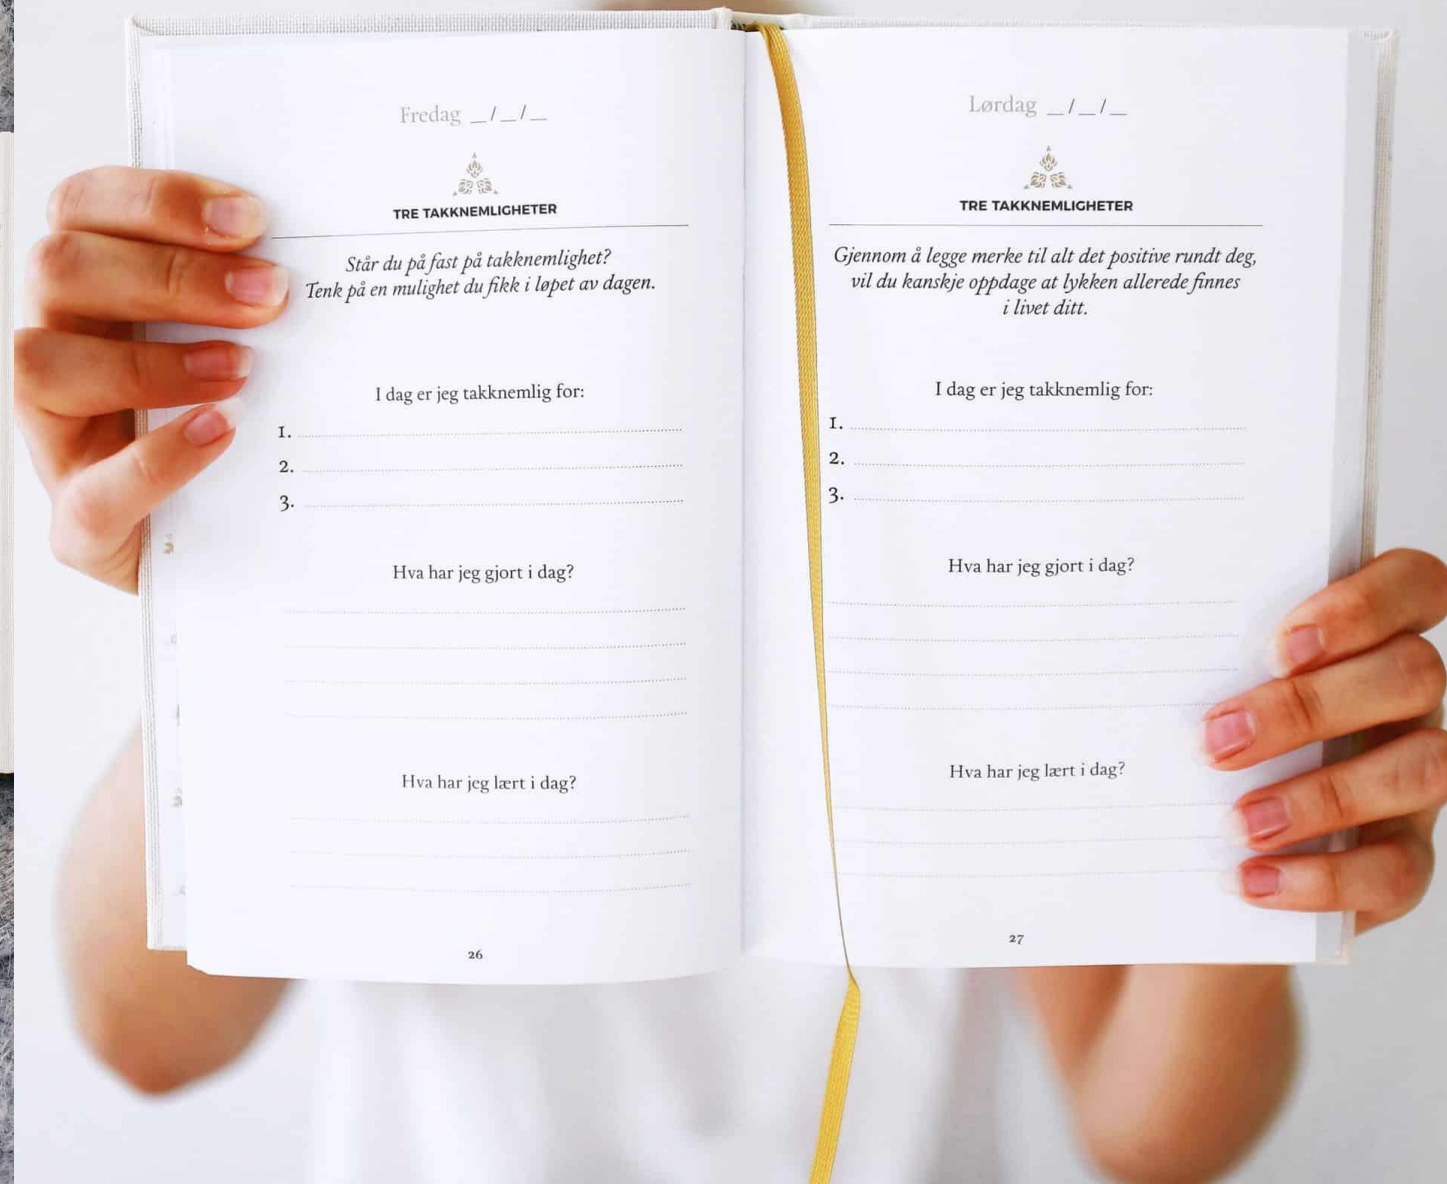 Fredag _/_/_
TRE TAKKNEMLIGHETER
Står du på fast på takknemlighet?
Tenk på en mulighet du fikk i løpet av dagen.
I dag er jeg takknemlig for:
1.
2.
3.
Hva har jeg gjort i dag?
Hva har jeg lært i dag?
26
Lørdag _/_/_
TRE TAKKNEMLIGHETER
Gjennom å legge merke til alt det positive rundt deg,
vil du kanskje oppdage at lykken allerede finnes
i livet ditt.
I dag er jeg takknemlig for:
1.
2.
3.
Hva har jeg gjort i dag?
Hva har jeg lært i dag?
27